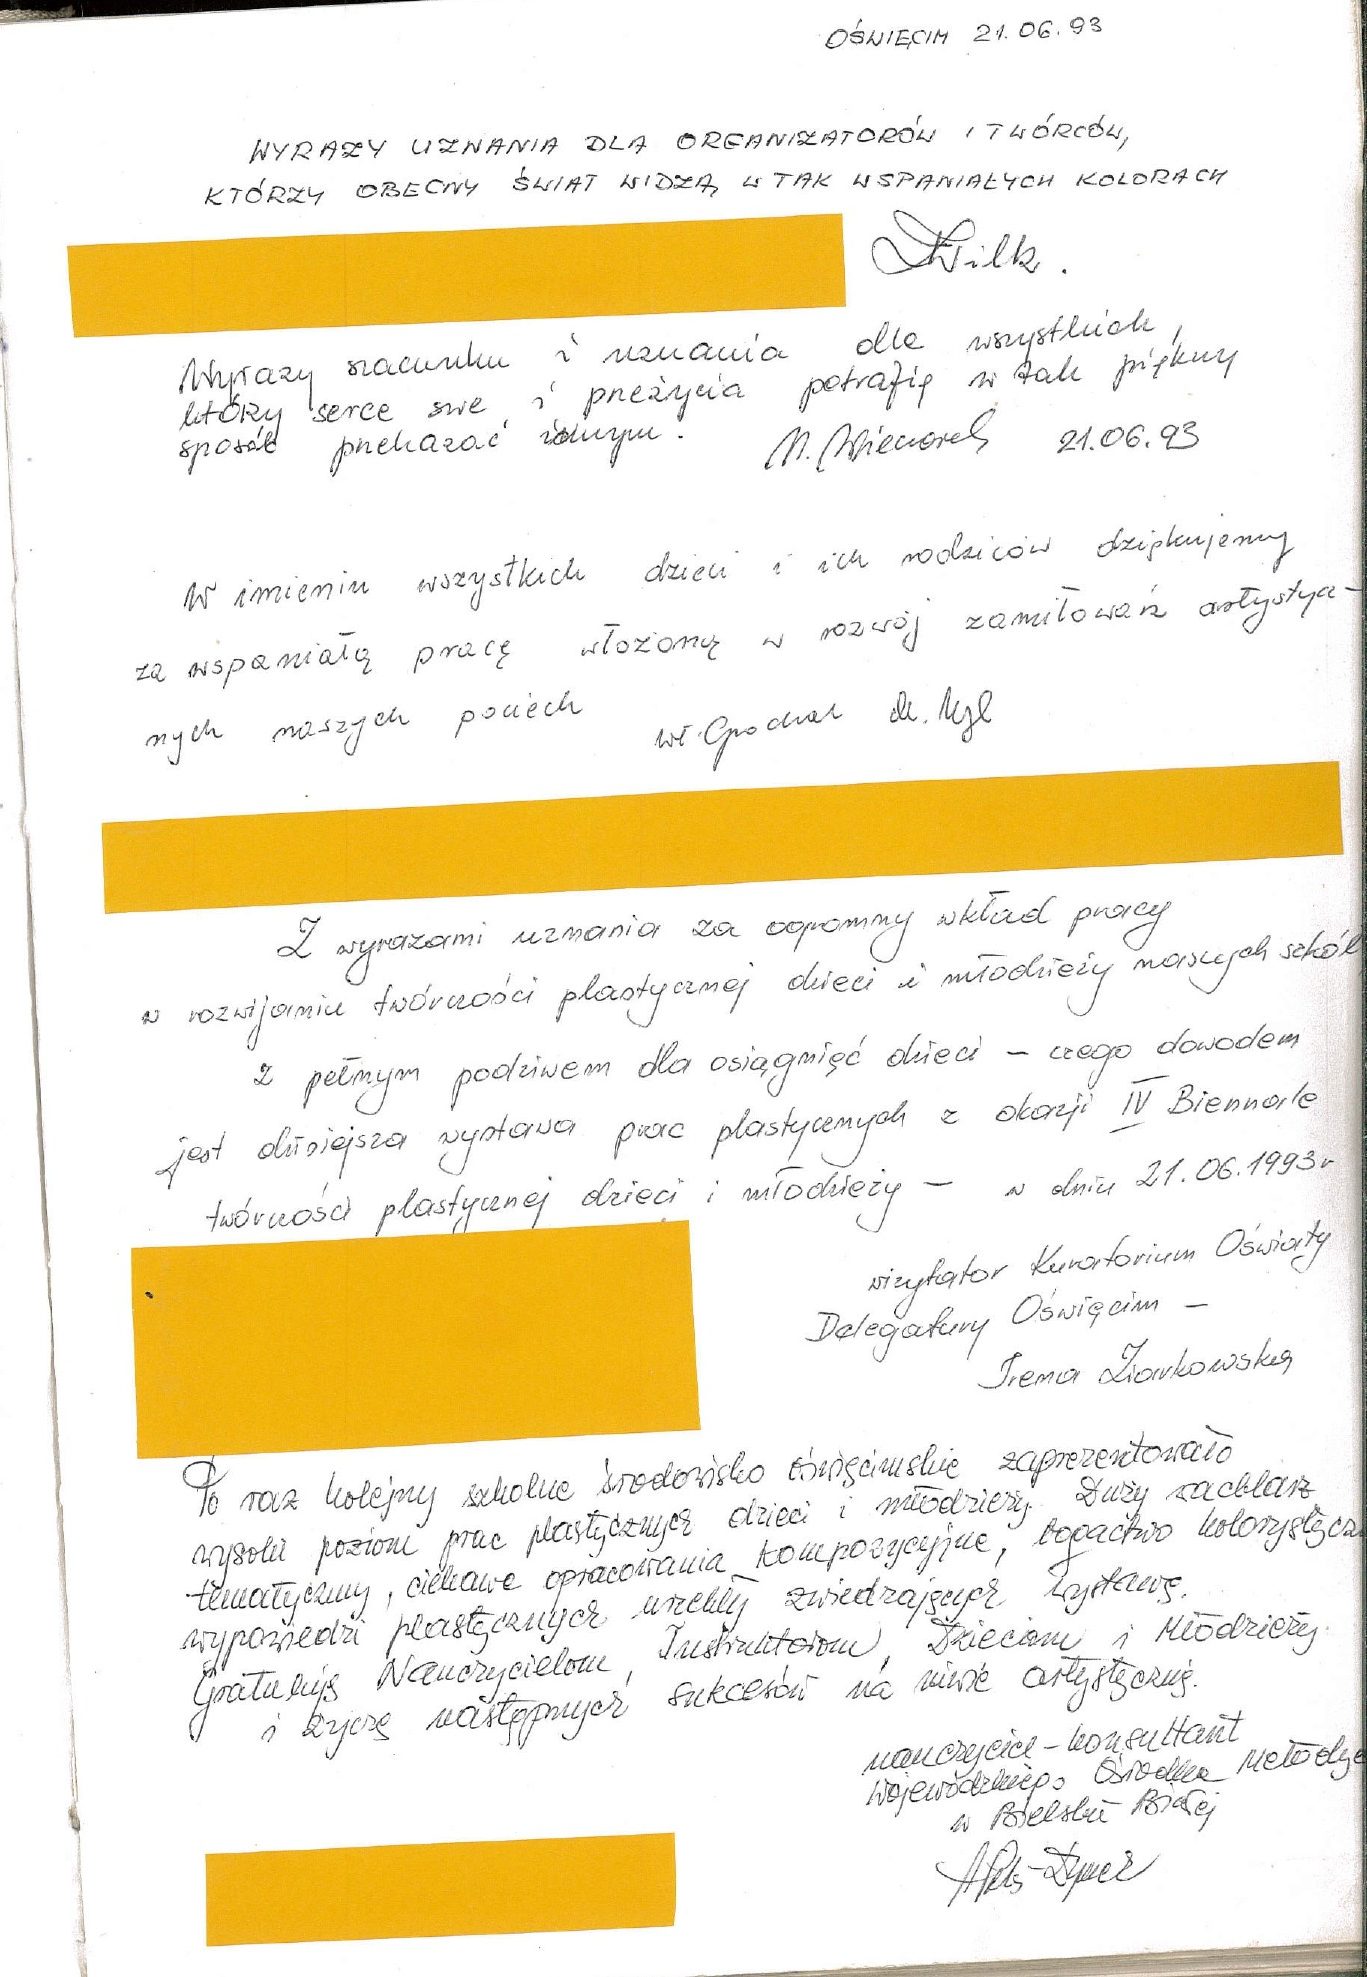 OŚWIĘCIM 21.06.93
WYRAZY UZNANIA DLA ORGANIZATORÓW I TWÓRCÓW,
KTÓRZY OBECNY ŚWIAT WIDZĄ W TAK WSPANIAŁYCH KOLORACH
Wilk.
Wyrazy szacunku i uznania dla wszystkich,
którzy serce swe i przeżycia potrafią w tak piękny
sposób przekazać innym.
21.06.93
W imieniu wszystkich dzieci i ich rodziców dziękujemy
za wspaniałą pracę włożoną w rozwój zamiłowań artystycz-
nych naszych pociech
Z wyrazami uznania za ogromny wkład pracy
w rozwijaniu twórczości plastycznej dzieci i młodzieży naszych szkół
z pełnym podziwem dla osiągnięć dzieci – czego dowodem
jest dzisiejsza wystawa prac plastycznych z okazji IV Biennale
twórczości plastycznej dzieci i młodzieży – w dniu 21.06.1993r
wizytator Kuratorium Oświaty
Delegatury Oświęcim –
Irena Ziarkowska
Po raz kolejny szkolne środowisko oświęcimskie zaprezentowało
wysoki poziom prac plastycznych dzieci i młodzieży. Duży wachlarz
tematyczny, ciekawe opracowania kompozycyjne, bogactwo kolorystyczn
wypowiedzi plastycznych urzekły zwiedzających wystawę.
Gratuluję Nauczycielom, Instruktorom, Dzieciom i Młodzieży
i życzę następnych sukcesów na niwie artystycznej.
nauczyciel – konsultant
Wojewódzkiego Ośrodka Metodycz
w Bielsku Białej